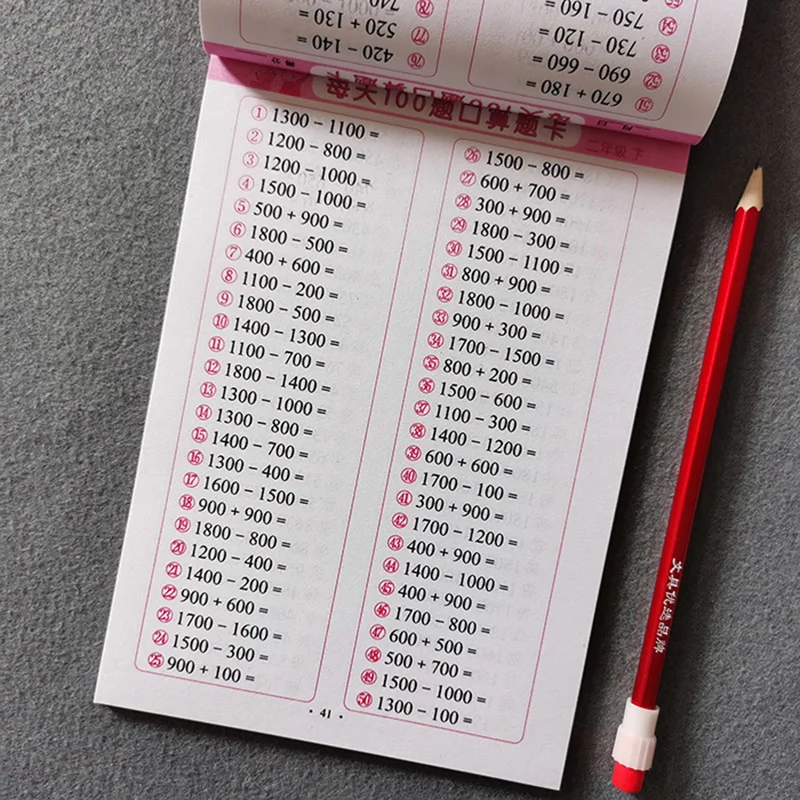 51 670 + 180 =
52 690 − 660 =
53 730 − 120 =
54 750 − 160 =
76 420 − 140 =
77 520 + 130 =
78 740
得分
月 日
每天100题口算题卡
二年级 下
① 1300 − 1100 =
② 1200 − 800 =
③ 1200 − 1000 =
④ 1500 − 1000 =
⑤ 500 + 900 =
⑥ 1800 − 500 =
⑦ 400 + 600 =
⑧ 1100 − 200 =
⑨ 1800 − 500 =
⑩ 1400 − 1300 =
⑪ 1100 − 700 =
⑫ 1800 − 1400 =
⑬ 1300 − 1000 =
⑭ 1300 − 800 =
⑮ 1400 − 700 =
⑯ 1300 − 400 =
⑰ 1600 − 1500 =
⑱ 900 + 900 =
⑲ 1800 − 800 =
⑳ 1200 − 400 =
㉑ 1400 − 200 =
㉒ 900 + 600 =
㉓ 1700 − 1600 =
㉔ 1500 − 300 =
㉕ 900 + 100 =
㉖ 1500 − 800 =
㉗ 600 + 700 =
㉘ 300 + 900 =
㉙ 1800 − 300 =
㉚ 1500 − 1100 =
㉛ 800 + 900 =
㉜ 1800 − 1000 =
㉝ 900 + 300 =
㉞ 1700 − 1500 =
㉟ 800 + 200 =
㊱ 1500 − 600 =
㊲ 1100 − 300 =
㊳ 1400 − 1200 =
㊴ 600 + 600 =
㊵ 1700 − 100 =
㊶ 300 + 900 =
㊷ 1700 − 1200 =
㊸ 400 + 900 =
㊹ 1400 − 1000 =
㊺ 400 + 900 =
㊻ 1700 − 800 =
㊼ 600 + 500 =
㊽ 500 + 700 =
㊾ 1500 − 1000 =
㊿ 1300 − 100 =
· 41 ·
文具优选品牌